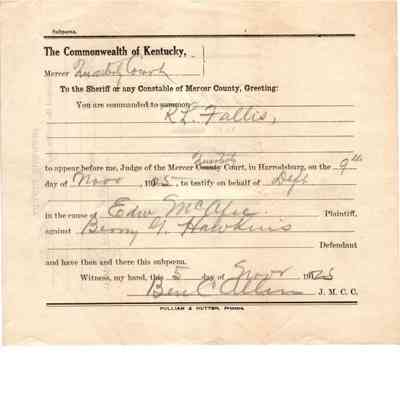 Subpoena.
The Commonwealth of Kentucky,
Mercer Quarterly Court
To the Sheriff or any Constable of Mercer County, Greeting:
You are commanded to summon
R L Fallis,
Quarterly
to appear before me, Judge of the Mercer County Court, in Harrodsburg, on the 9th
day of Novr, 1905, to testify on behalf of Deft
in the cause of Edw McAfee Plaintiff,
against G Hawkins
Defendant
and have then and there this subpoena.
Witness, my hand, this 5 day of Novr
Ben C Allin J. M. C. C.
PULLIAM & NUTTER, Printers.